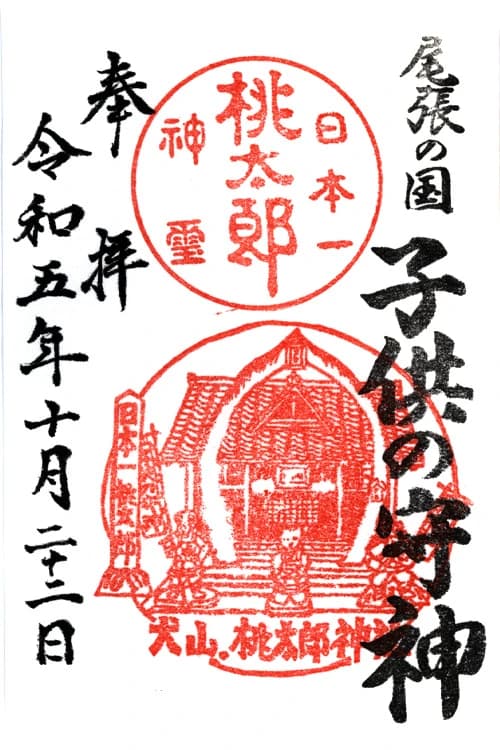 尾張の国
子供の守神
日本一
桃太郎
神霊
犬山.桃太郎神社
奉拝
令和五年十月二十二日